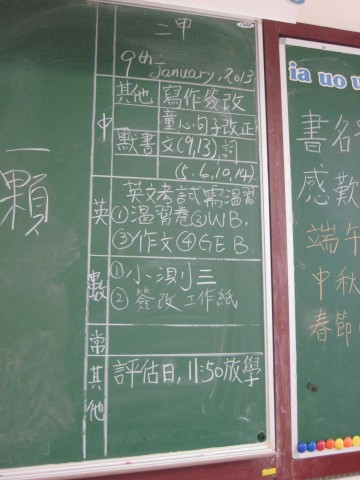 二甲
9th January, 2013
中
其他 寫作簽改
童心句子改正
默書 文(9,13) 詞
(5,6,10,14)
英
英文考試需溫習
①溫習卷②WB,
③作文④GEB
數
①小測小三
②簽改工作紙
常
其他
評估日,11:50放學
一顆
ia uo u
書名
感歎
端午
中秋
春節